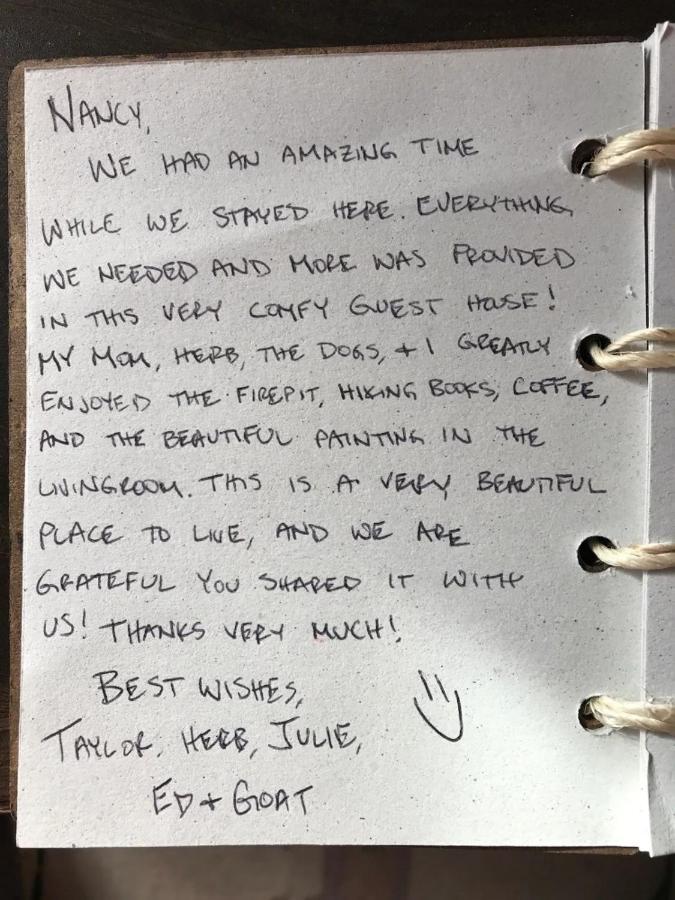 NANCY,
WE HAD AN AMAZING TIME
WHILE WE STAYED HERE. EVERYTHING
WE NEEDED AND MORE WAS PROVIDED
IN THIS VERY COMFY GUEST HOUSE!
MY MOM, HERB, THE DOGS, + I GREATLY
ENJOYED THE FIREPIT, HIKING BOOKS, COFFEE,
AND THE BEAUTIFUL PAINTING IN THE
LIVINGROOM. THIS IS A VERY BEAUTIFUL
PLACE TO LIVE, AND WE ARE
GRATEFUL YOU SHARED IT WITH
US! THANKS VERY MUCH!
BEST WISHES,
TAYLOR, HERB, JULIE,
ED + GOAT